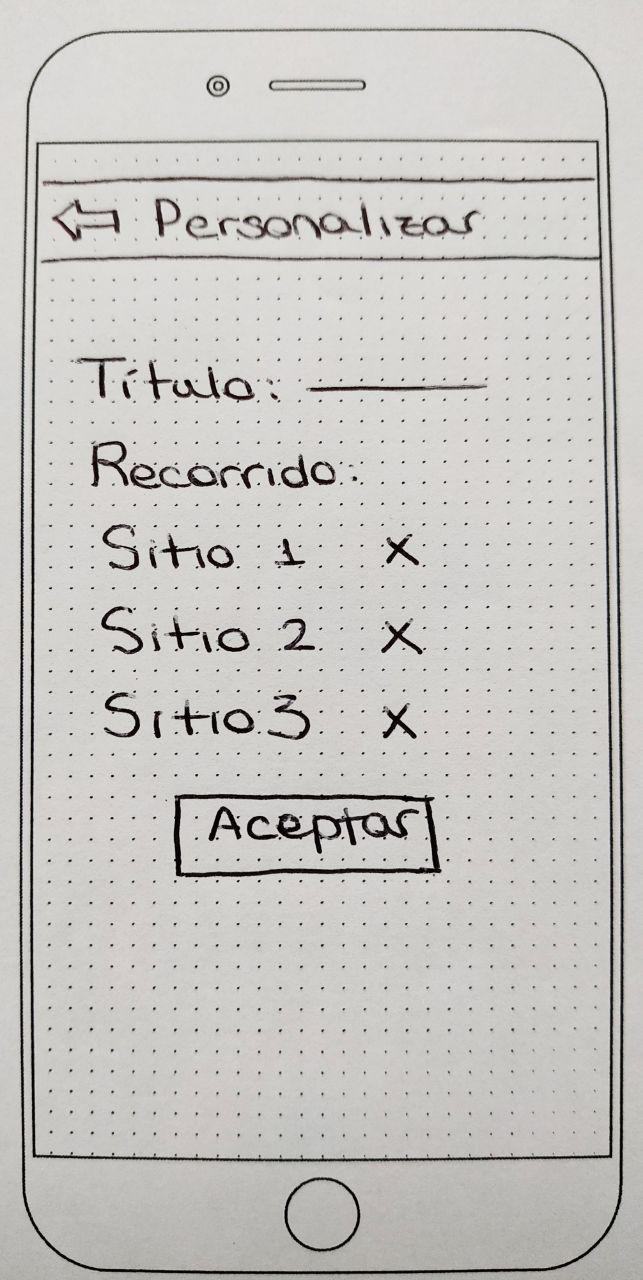 Personalizar
Título:
Recorrido:
Sitio 1 X
Sitio 2 X
Sitio 3 X
Aceptar